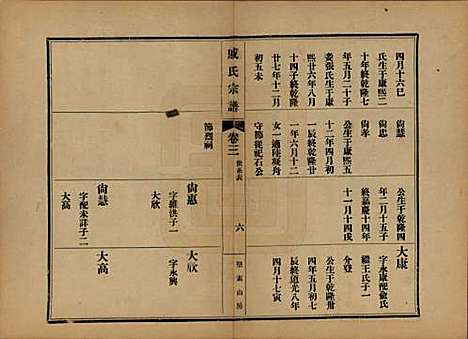 四月十六巳
氏生于康熙二
十年終乾隆九
年五月二十子
娶張氏生于康
熙廿六年八月
十四子終乾隆
廿七年十二月
初五未
尙慧
尙忠
尙孝
公生于康熙五
十二年四月初
一辰終乾隆廿
一年六月十二
女一適陸凝舟
守節從祀石公
節烈祠
大康
公生于乾隆四
年二月十五子
終嘉慶十四年
十一月十四戌
字永康配俞氏
繼王氏子一
介發
公生于乾隆卅
四年五月初七
辰終道光八年
四月十七寅
戚氏宗譜
卷三
世系表
六
尙惠
字維洪子一
大欣
尙慧
字配未詳子二
大高
大欣
字永興
大高